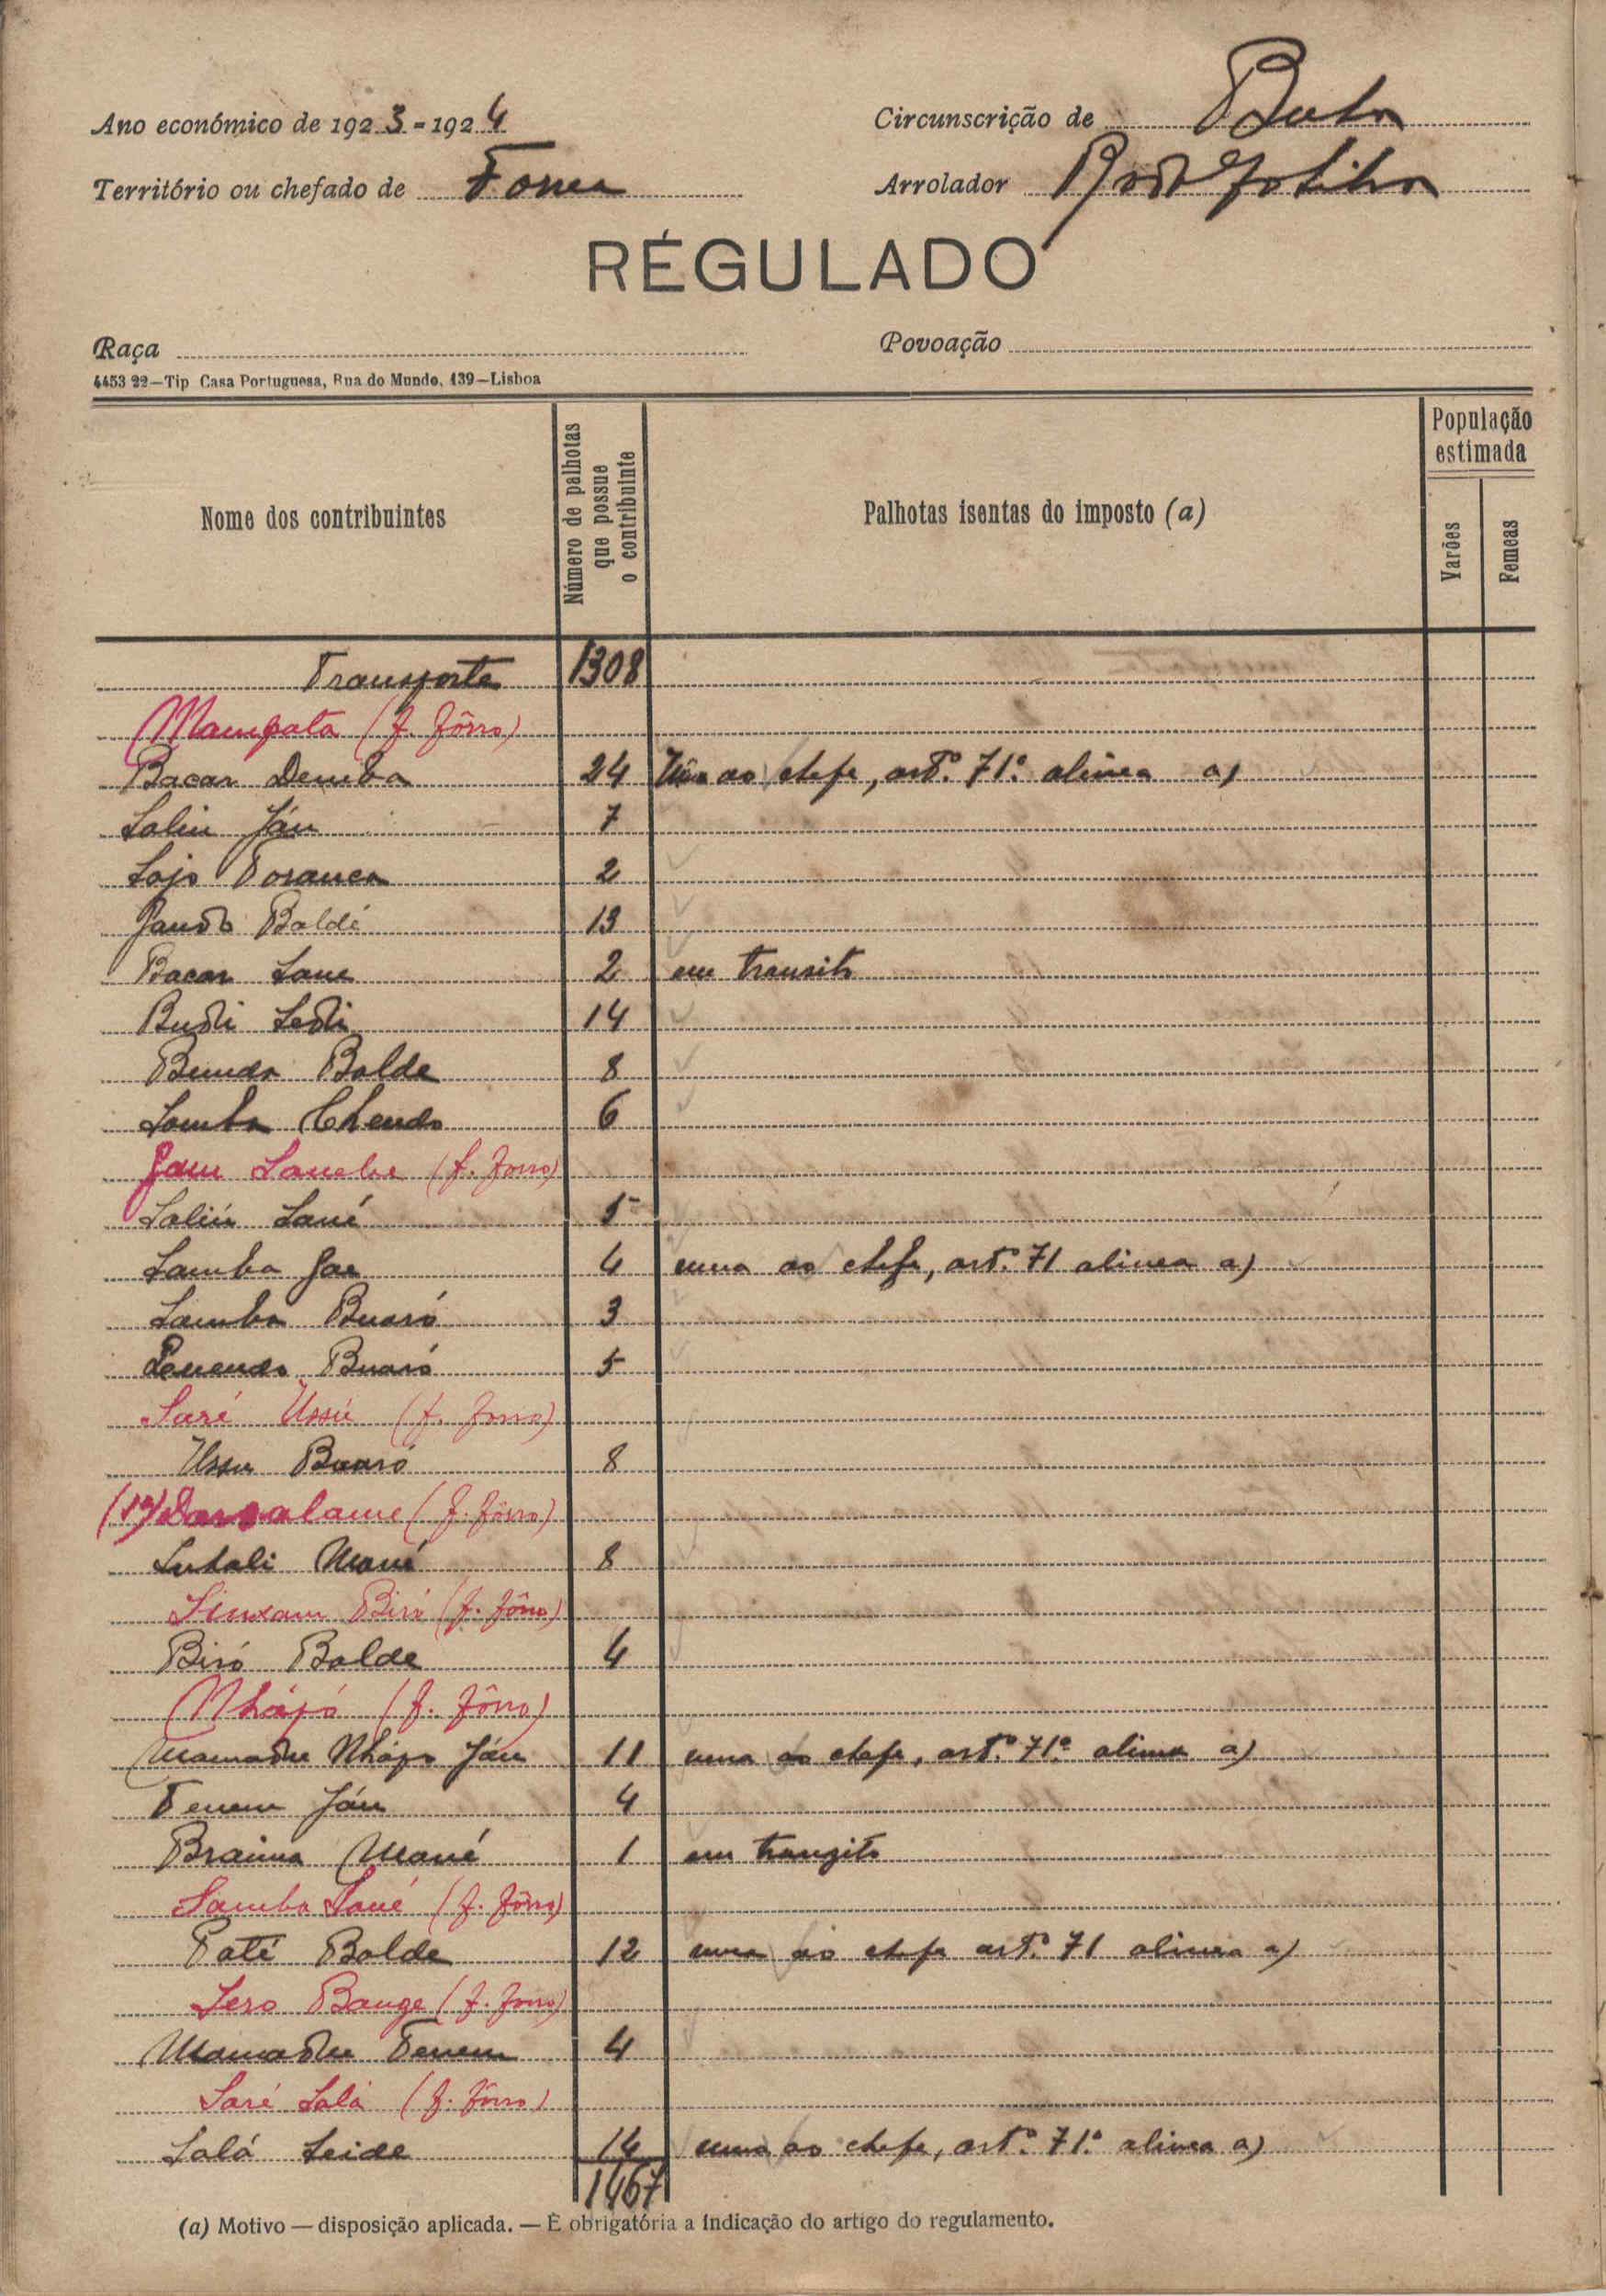 Ano económico de 1923-1924
Circunscrição de Buba
Território ou chefado de
Arrolador
RÉGULADO
Raça
Povoação
4453 22—Tip Casa Portuguesa, Rua do Mundo, 139—Lisboa
Nome dos contribuintes
Número de palhotas que possue o contribuinte
Palhotas isentas do imposto (a)
População estimada
Varões
Femeas
Transporte 1308
Mampata (f. fôrro)
Bacar Demba 24 Uma ao chefe, artº. 71º. alinea a)
Saliu Jáu 7
2
Baldé 13
Bacar Sane 2 em transito
14
Bunda Balde 8
Samba 6
(f. forro)
Saliú Sané 5
Samba 4 uma ao chefe, artº. 71 alinea a)
Samba Buaró 3
Buaró 5
Saré Ussú (f. forro)
Ussu Buaró 8
Darsalame (f. fôrro)
Mané 8
Sinxam Biró (f. fôrro)
Biró Balde 4
Nhápó (f. fôrro)
Mamadu Nhápo Jáu 11 uma ao chefe, artº. 71º. alinea a)
Tenem Jáu 4
Braima Mané 1 em tranzito
Samba Sané (f. fôrro)
Paté Balde 12 uma ao chefe artº. 71 alinea a)
(f. forro)
Mamadu Tenem 4
Saré Salá (f. fôrro)
Salá Seide 14 uma ao chefe, artº. 71º. alinea a)
1467
(a) Motivo — disposição aplicada. — É obrigatória a indicação do artigo do regulamento.